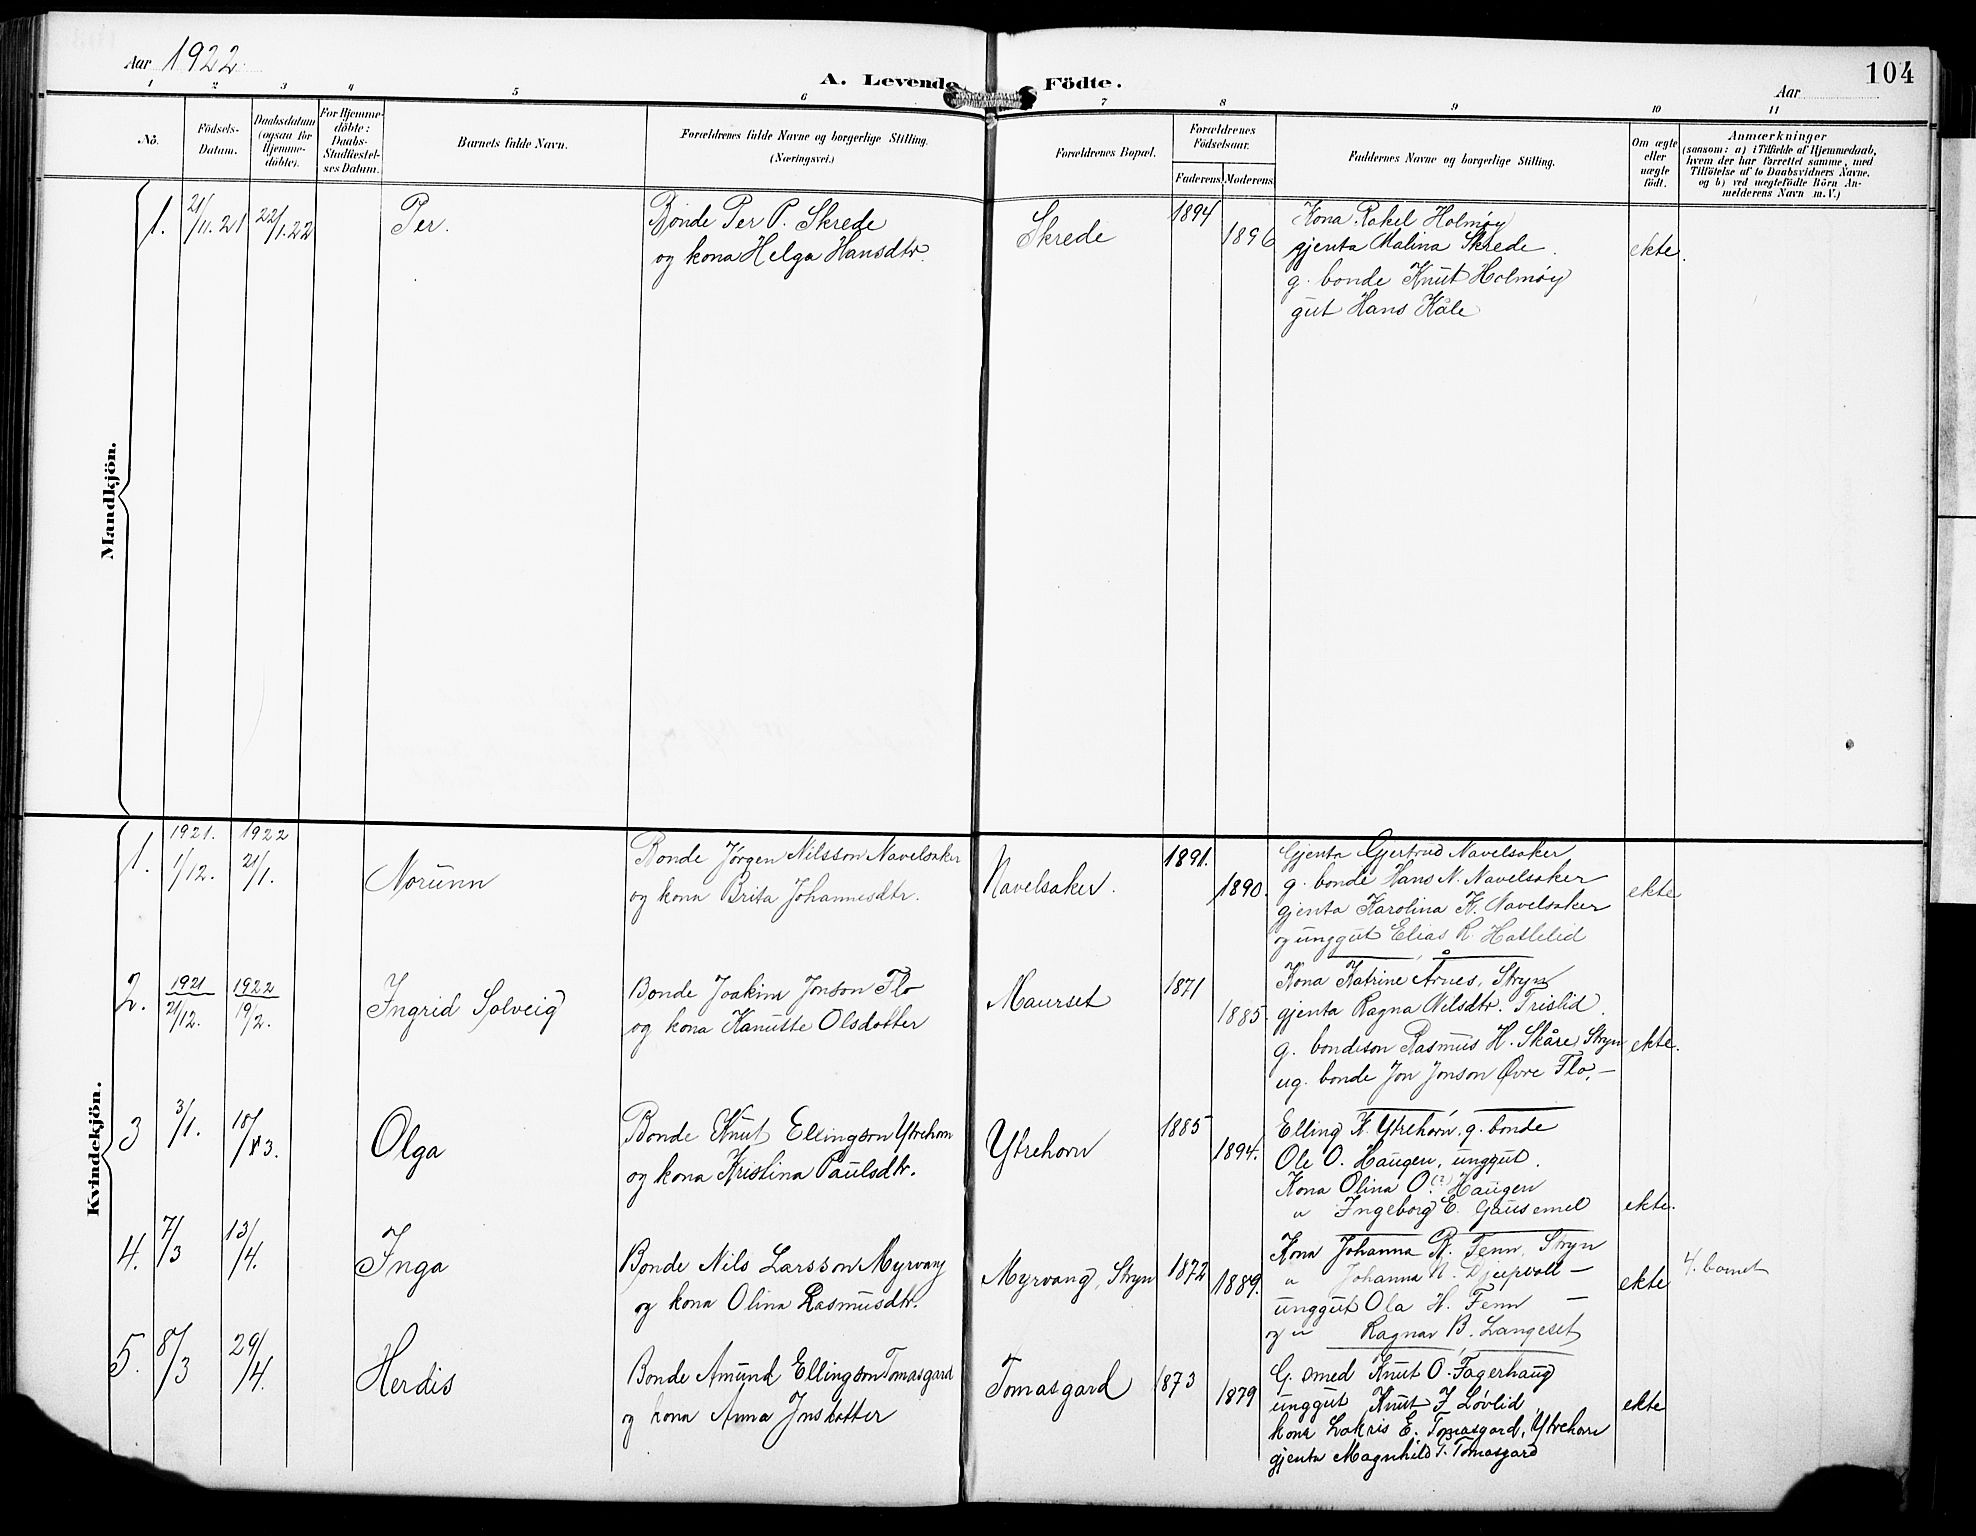 104
Aar 1922
A. Levende Födte.
Aar
1 2 3 4 5 6 7 8 9 10 11
No.
Födsels-Datum.
Daabsdatum (ogsaa for Hjemme-döbte).
For Hjemme-döbte: Daabs-Stadfæstel-ses Datum.
Barnets fulde Navn.
Forældrenes fulde Navne og borgerlige Stilling. (Næringsvei.)
Forældrenes Bopæl.
Forældrenes Födselsaar.
Faderens Moderens
Faddernes Navne og borgerlige Stilling.
Om ægte eller uægte født.
Anmærkninger
(saasom: a) i Tilfælde af Hjemmedaab,
hvem der har forrettet samme, med
Tilföielse af to Daabsvidners Navne.
og b) ved uægtefödte Börn An-
melderens Navn m.V.)
Mandkjön.
1. 21/11.21 22/1.22 Per.
Bonde Per P. Skrede
og kona Helga Hansdtr.
Skrede
1894
1896
Kona Rakel Holmøy
gjenta Malina Skrede.
g. bonde Knut Holmøy
gut Hans Kåle
ekte.
Kvindekjön.
1. 1921. 1/12. 1922 21/1. Norunn
Bonde Jørgen Nilsson Navelsaker
og kona Brita Johannesdtr.
Navelsaker.
1891.
1890.
Gjenta Gjertrud Navelsaker
g. bonde Hans N. Navelsaker
gjenta Karolina K. Navelsaker
og unggut Elias R. Hatlelid
ekte
2. 1921 21/12. 1922 19/2. Ingrid Solveig
Bonde Joakim Jonson Flo
og kona Kanutte Olsdotter
Maurset
1871
1885.
Kona Katrine Årnes, Stryn
gjenta Ragna Nilsdtr. Trislid.
g. bondeson Rasmus H. Skåre, Stryn
ug. bonde Jon Jonson Øvre Flo, —
ekte.
3 3/1. 18/3. Olga
Bonde Knut Ellingson Ytrehorn
og kona Kristina Paulsdtr.
Ytrehorn
1885
1894.
Elling K. Ytrehorn, g. bonde
Ole O. Haugen, unggut.
Kona Olina O.(?) Haugen
" Ingeborg E. Gausemel
ekte.
4. 7/3 13/4. Inga
Bonde Nils Larsson Myrvang
og kona Olina Rasmusdtr.
Myrvang, Stryn
1872
1889.
Kona Johanna R. Tenn, Stryn
" Johanna N. Djupvoll —
unggut Ola H. Tenn —
og " Ragnar B. Langeset
ekte
4. barnet
5. 8/3 29/4. Herdis
Bonde Amund Ellingson Tomasgard
og kona Anna Jnsdotter
Tomasgard
1873
1879
G. smed Knut O. Fagerhaug
unggut Knut J. Løvlid
kona Lakris E. Tomasgard, Ytrehorn
gjenta Magnhild T. Tomasgard
ekte